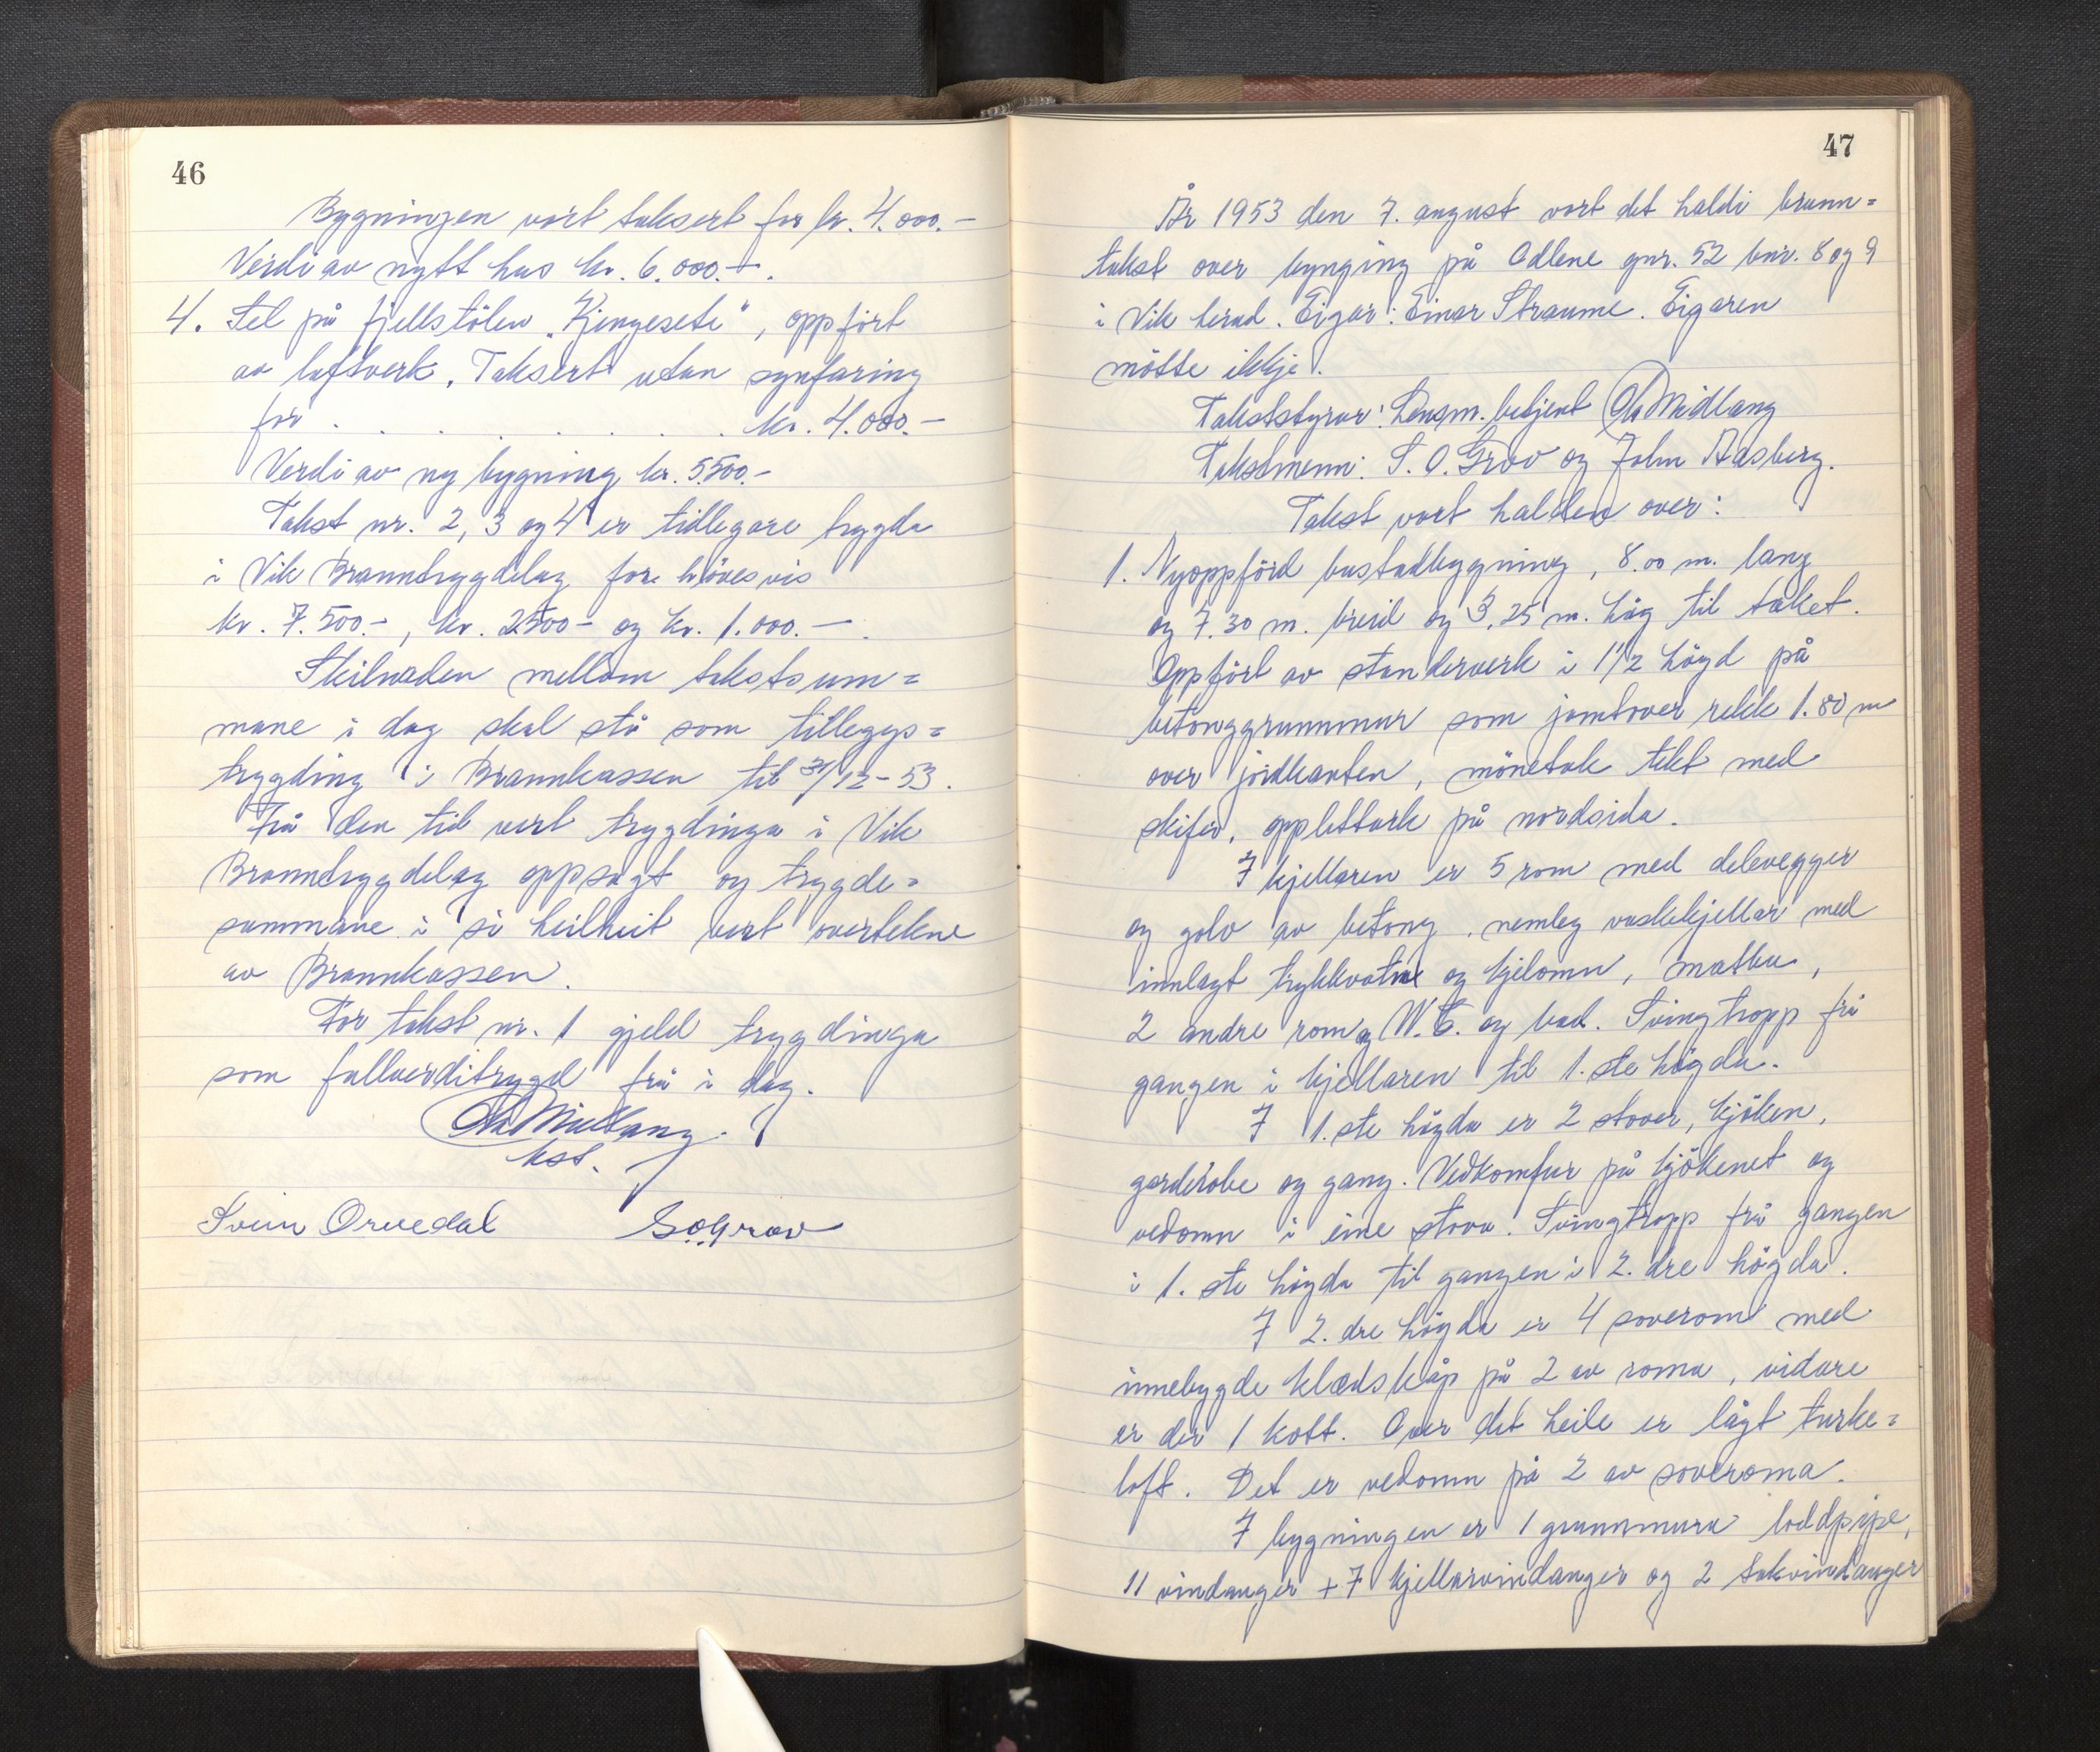 46
Bygningen vart taksert for kr. 4.000.-
Verdi av nytt hus kr. 6.000.-.
4. Sel på fjellstölen „Kjengesete", oppfört
av laftverk. Taksert utan synfaring
for . . . . . . . . kr. 4.000.-
Verdi av ny bygning kr. 5.500.-
Takst nr. 2, 3 og 4 er tidlegare trygda
i Vik Branntrygdelag for hövesvis
kr. 7.500.-, kr. 2500- og kr. 1.000.-.
Skilnaden mellom takstsum=
mane i dag skal stå som tilleggs=
trygding i Brannkassen til 31/12-53.
Frå den tid vert trygdinga i Vik
Branntrygdelag oppsagt og trygde=
summane i si heilheit vert overtekne
av Brannkassen.
For takst nr. 1 gjeld trygdinga
som fullverditrygd frå i dag.
Ola Midlang.
kst.
Svein Orvedal S.O.Grov
47
År 1953 den 7. august vart det haldi brann=
takst over bygning på Odlene gnr. 52 bnr. 8 og 9
i Vik herad. Eigar: Einar Straume. Eigaren
mötte ikkje.
Takststyrar: Lensm.betjent Ola Midlang
Takstmenn: S. O. Grov og John Aasberg.
Takst vart halden over:
1. Nyoppförd bustadbygning, 8.00 m. lang
og 7.30 m. breid og 3,25 m. høg til taket.
Oppfört av standerverk i 1 1/2 högd på
betonggrunnmur som jamtover rekk 1.80 m
over jordkanten, mönetak tekt med
skifer, opplettark på nordsida.
I kjellaren er 5 rom med delevegger
og golv av betong, nemleg vaskekjellar med
innlagt trykkvatn og kjelomn, matbu,
2 andre rom og W.C. og bad. Svingtropp frå
gangen i kjellaren til 1.ste högda.
I 1.ste högda er 2 stover, kjöken,
garderobe og gang. Vedkomfur på kjökenet og
vedomn i eine stova. Svingtropp frå gangen
i 1.ste högda til gangen i 2.dre högda.
I 2.dre högda er 4 soverom med
innebygde klædskåp på 2 av roma, vidare
er der 1 kott. Over det heile er lågt turke=
loft. Det er vedomn på 2 av soveroma.
I bygningen er 1 grunnmura loddpipe,
11 vindauger + 7 kjellarvindauger og 2 takvindauger